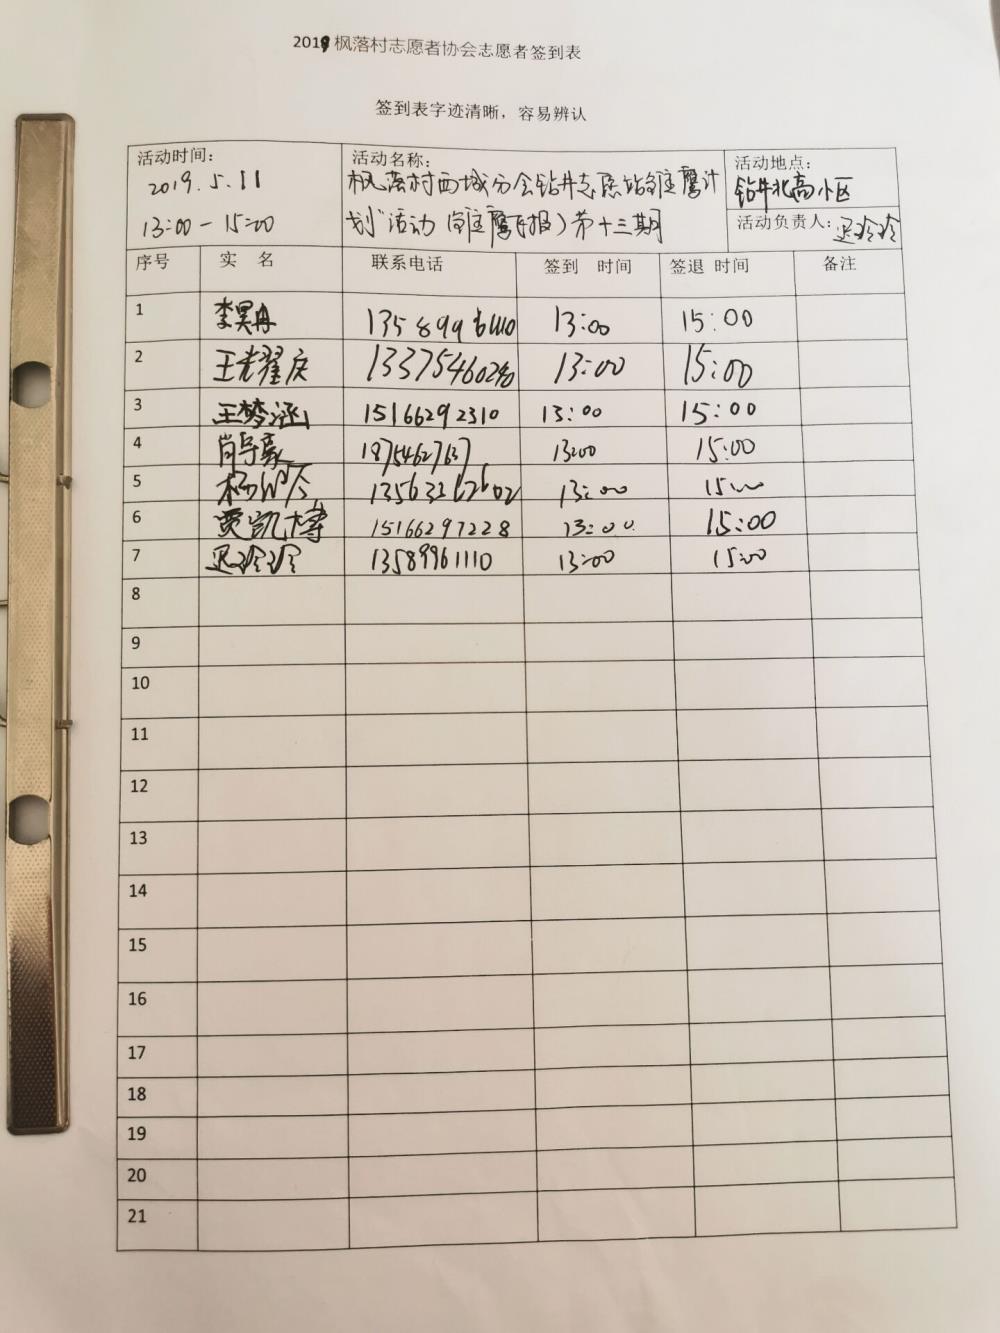 2019 枫落村志愿者协会志愿者签到表
签到表字迹清晰，容易辨认
活动时间：
2019.5.11
13:00-15:00
活动名称：
枫落村西城分会钻井志愿站雏鹰计
划活动（雏鹰飞报）第十三期
活动地点：
钻井北高小区
活动负责人：迟玲玲
序号 实 名 联系电话 签到 时间 签退 时间 备注
1 李昊冉 13589961110 13:00 15:00
2 王光耀庆 13375460290 13:00 15:00
3 王梦涵 15166292310 13:00 15:00
4 肖 豪 18754627637 13:00 15:00
5 杨 13:00 15:00
6 贾凯博 15166297228 13:00 15:00
7 迟玲玲 13589961110 13:00 15:00
8
9
10
11
12
13
14
15
16
17
18
19
20
21